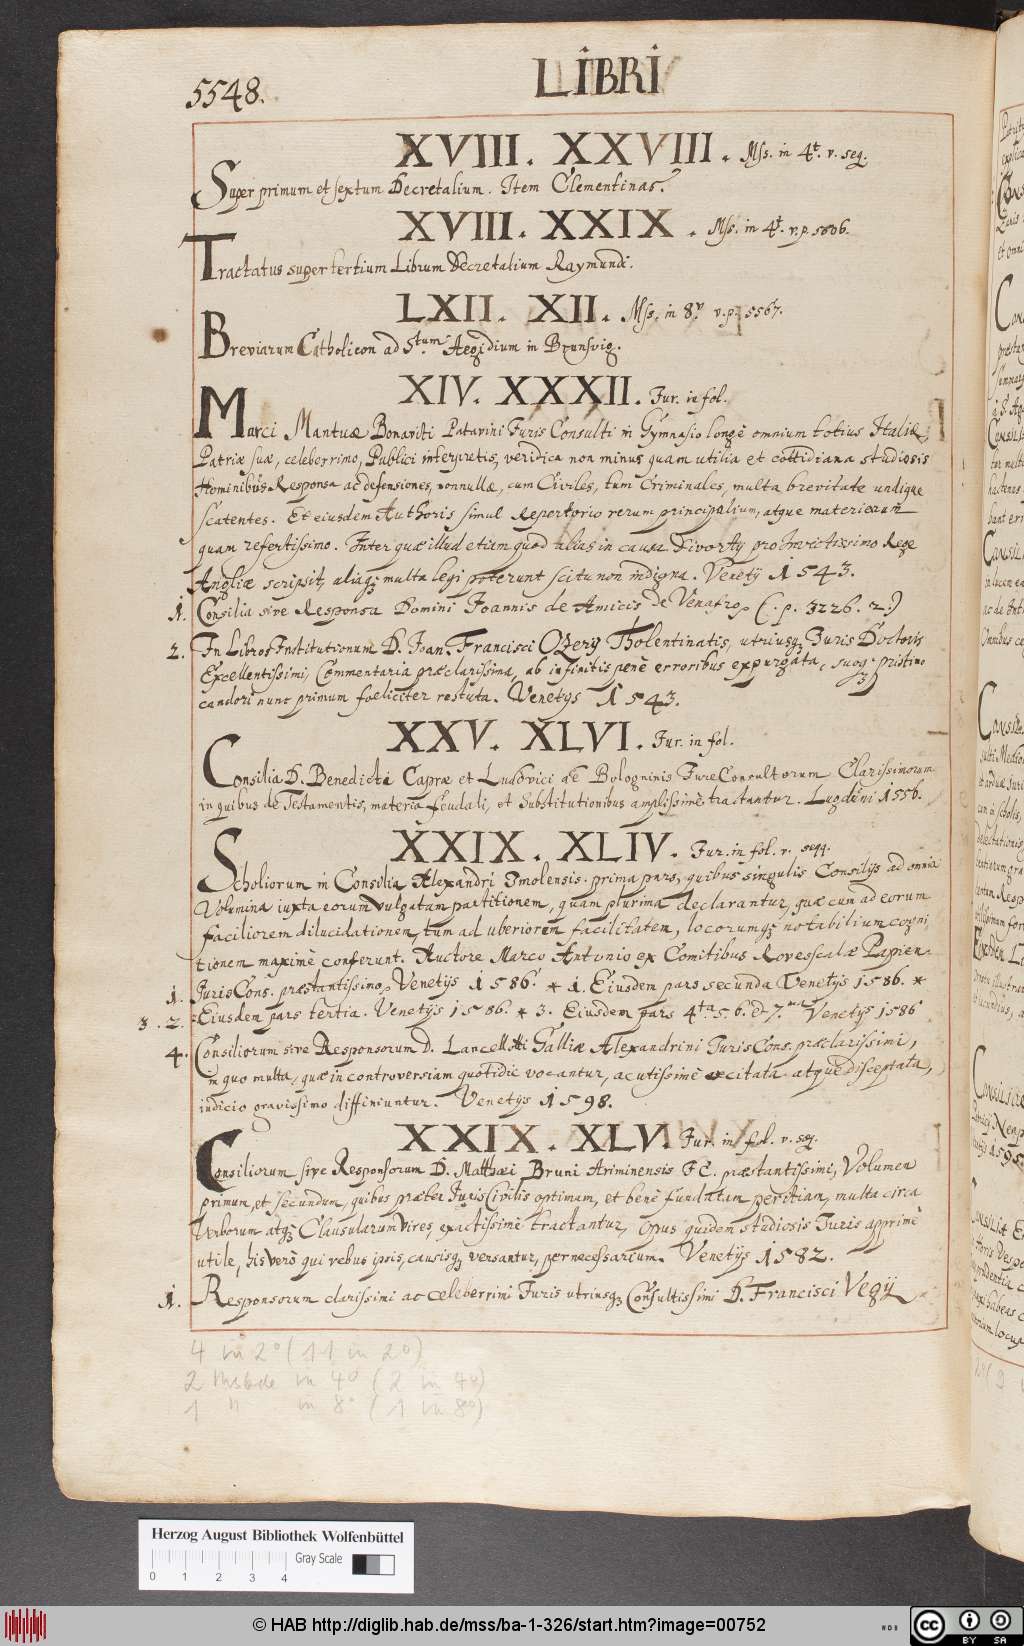 5548.
LIBRI
XVIII. XXVIII. Mss. in 4t. v. seq.
Super primum et sextum Decretalium. Item Clementinas.
XVIII. XXIX. Mss. in 4t. v. p. 5606.
Tractatus super tertium Librum Decretalium Raymundi.
LXII. XII. Mss. in 8v v. p. 5567.
Breviarum Catholicon ad Stum Aegidium in Brunsvig.
XIV. XXXII. Jur. in fol.
Marci Mantuæ Bonaviti Patavini Juris Consulti in Gymnasio longè omnium totius Italiæ,
Patriæ suæ, celeberrimo, Publici interpretis, veridica non minus quam utilia et cottidiana studiosis
Hominibus Responsa ac defensiones, nonnullæ, cum Civiles, tum Criminales, multa brevitate undique
scatentes. Et eiusdem Authoris simul Repertorio rerum principalium, atque materiarum
quam refertissimo. Inter quæ illud etiam quod alias in causa Divortÿ pro Invictissimo Rege
Angliæ scripsit, aliaq; multa legi poterunt scitu non indigna. Venetÿ 1543.
1. Consilia sive Responsa Domini Joannis de Amicis de Venafro, (. p. 3226. 2.)
2. In Libros Institutionum D. Joan. Francisci Ozerÿ Tholentinatis, utriusq; Juris Doctoris
Excellentissimi, Commentaria præclarissima, ab infinitis penè erroribus expurgata, suoq; pristino
candori nunc primum foeliciter restuta. Venetÿs 1543.
XXV. XLVI. Jur. in fol.
Consilia D. Benedicti Capræ et Ludovici de Bologninis JureConsultorum Clarissimorum
in quibus de Testamentis, materia feudali, et Substitutionibus amplissimè tractantur. Lugduni 1556.
XXIX. XLIV. Jur. in fol. v. seqq.
Scholiorum in Consilia Alexandri Imolensis prima pars, quibus singulis Consilijs ad omnia
Volumina iuxta eorum vulgatam partitionem, quam plurima declarantur, quæ cum ad eorum
faciliorem dilucidationem, tum ad uberiorem facilitatem, locorumq; notabilium cogni-
tionem maximè conferunt. Auctore Marco Antonio ex Comitibus Rovescalæ Papien.
1. JurisCons. præstantissimo, Venetÿs 1586. * 1. Eiusdem pars secunda Venetÿs 1586. *
3. 2. Eiusdem pars tertia. Venetÿs 1586. * 3. Eiusdem pars 4ta. 5. 6. & 7.ma Venetÿs 1586
4. Consiliorum sive Responsorum D. Lancellotti Galliæ Alexandrini JurisCons. præclarissimi,
in quo multa, quæ in controversiam quotidie vocantur, acutissimè excitata atque disceptata,
iudicio gravissimo diffiniuntur. Venetÿs 1598.
XXIX. XLV. Jur. in fol. v. seq.
Consiliorum sive Responsorum D. Matthæi Bruni Ariminensis JC. præstantissimi, Volumen
primum, et secundum, quibus præter Juris Civilis optimam, et benè fundatam peritiam, multa circa
Verborum atq; Clausularum vires, exactissimè tractantur, opus quidem studiosis Juris apprimè
utile, his verò qui rebus ipsis, causisq; versantur, pernecessarium. Venetÿs 1582.
1. Responsorum clarissimi ac celeberrimi Juris utriusq; Consultissimi D. Francisci Vegÿ
4 in 2° (11 in 2°)
2 Msbde in 4° (2 in 4°)
1 " in 8° (1 in 8°)
Herzog August Bibliothek Wolfenbüttel
Gray Scale
0 1 2 3 4
© HAB http://diglib.hab.de/mss/ba-1-326/start.htm?image=00752
cc BY SA